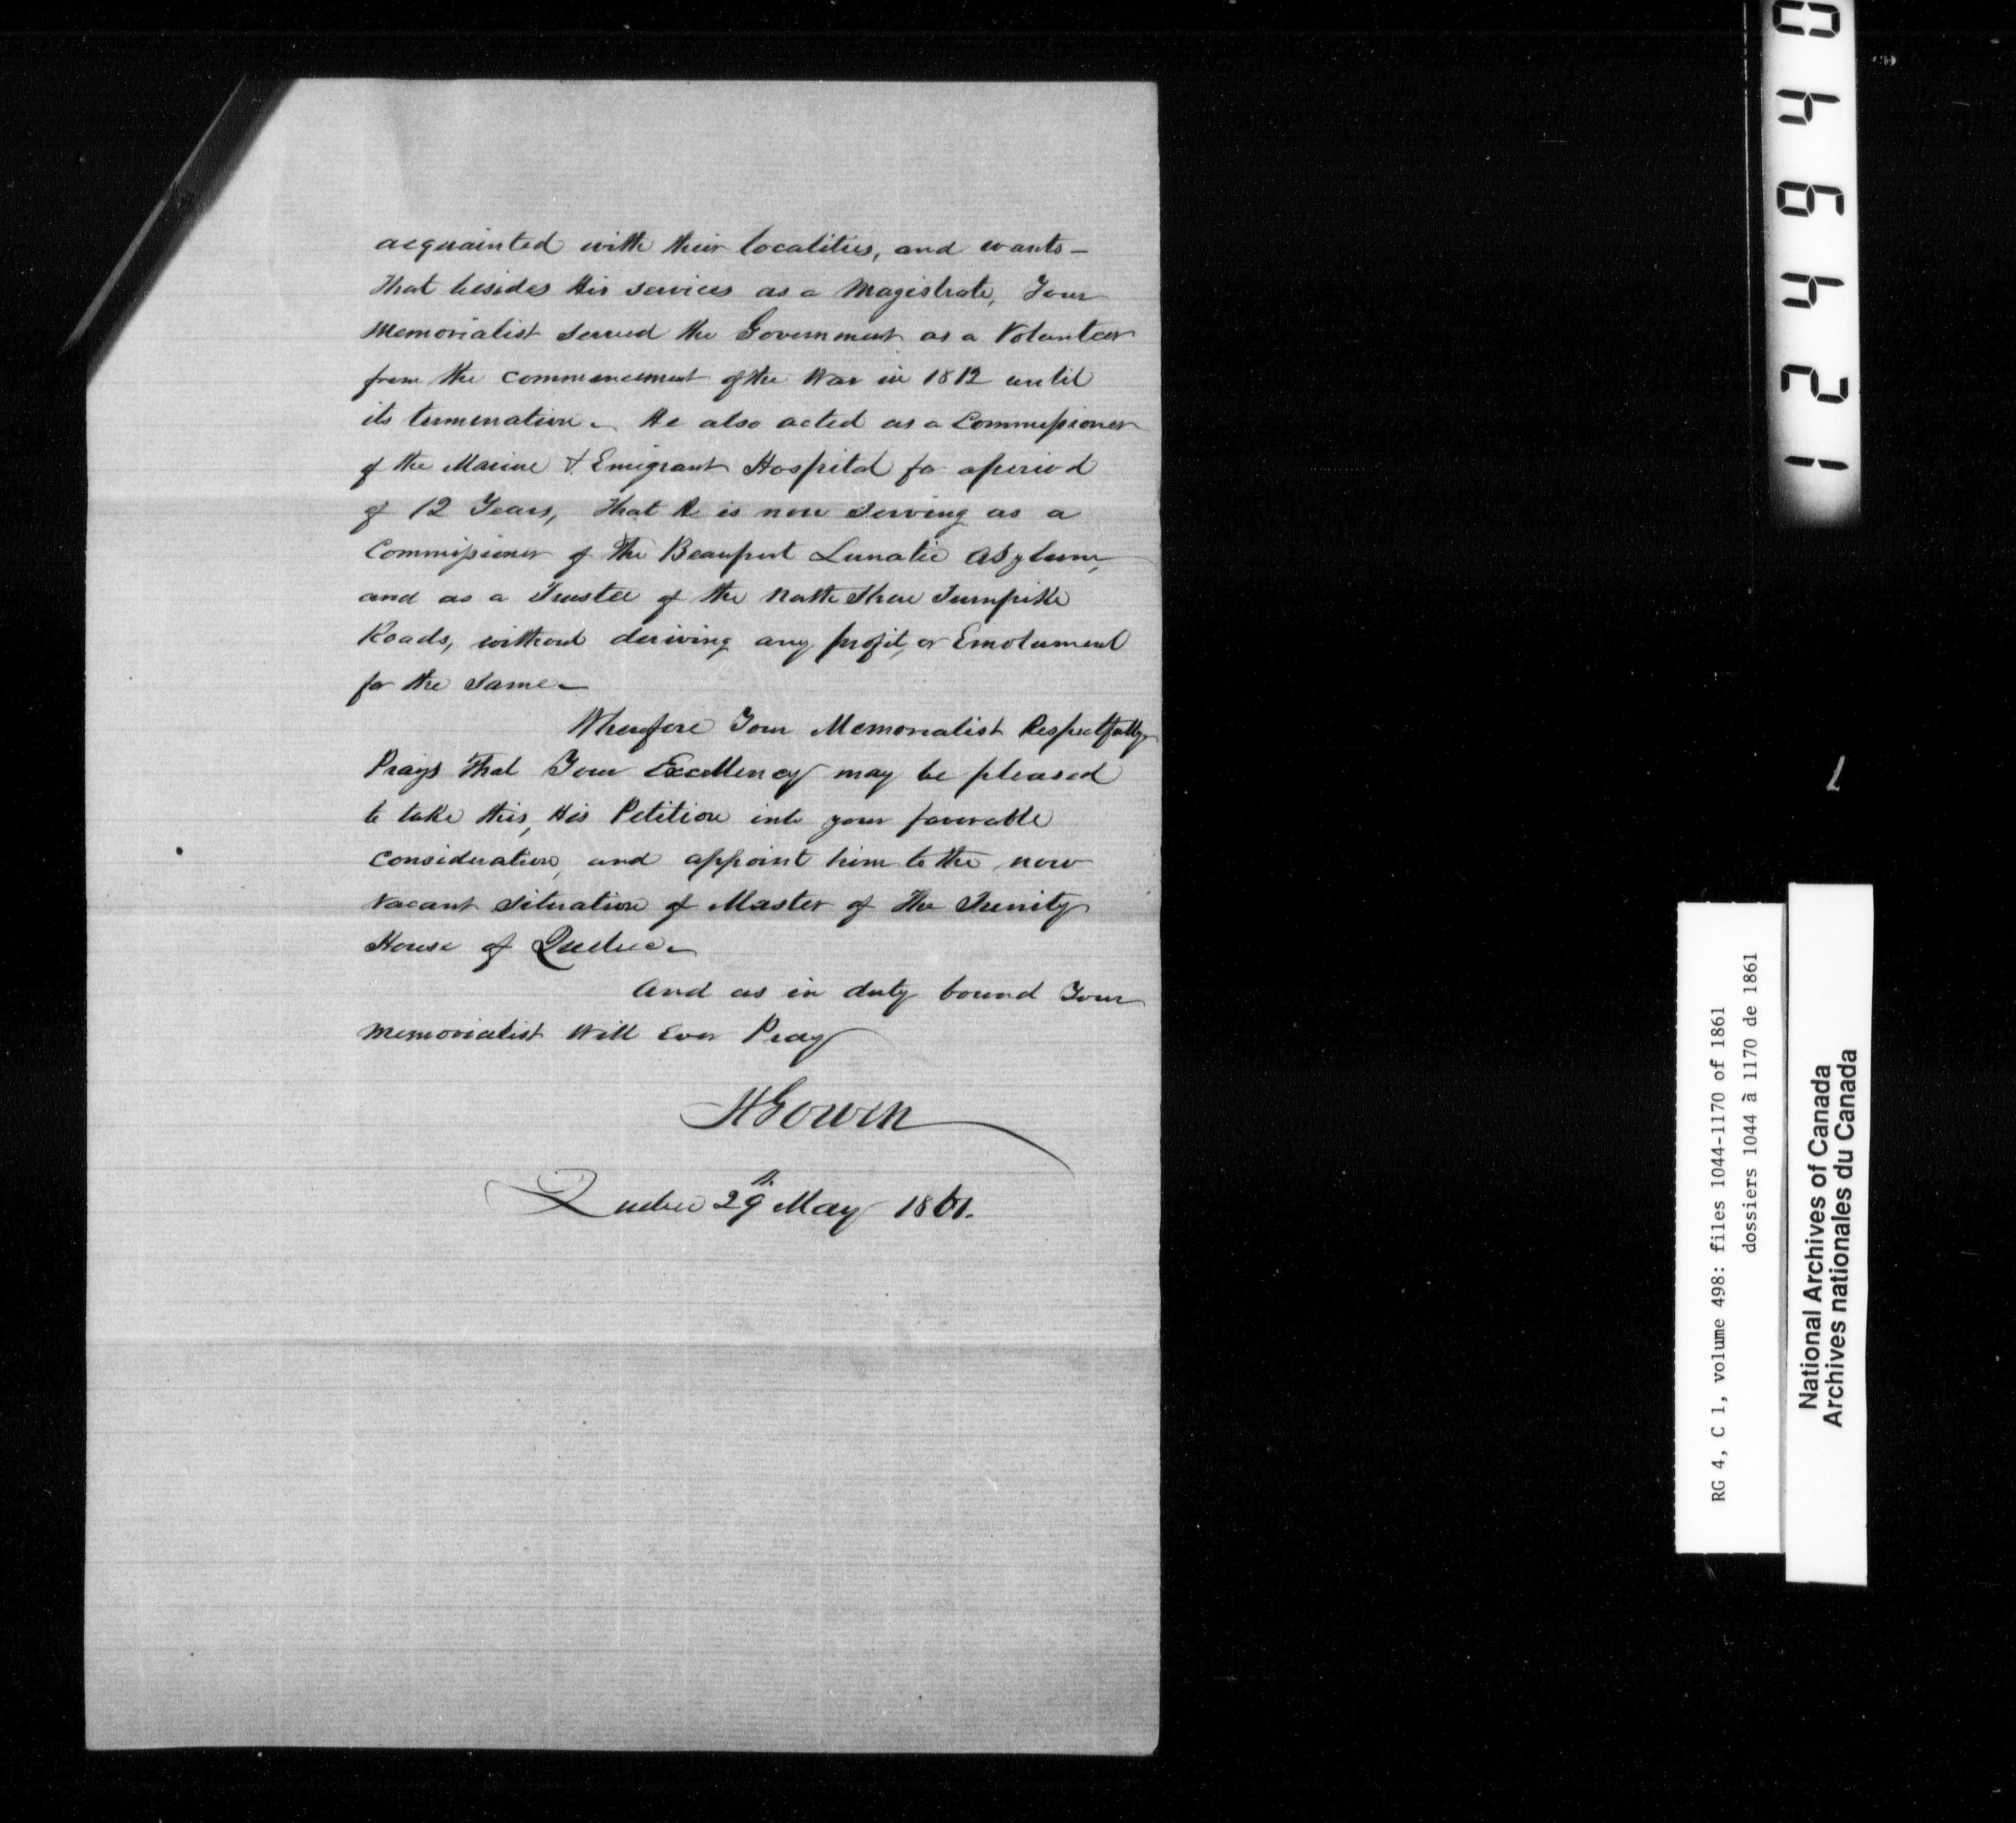 acquainted with their localities, and wants —
that besides His services as a Magistrate, Your
Memorialist served the Government as a Volunteer
from the commencement of the War in 1812 until
its termenation. He also acted as a Commissioner
of the Marine & Emigrant Hospital for a period
of 12 Years, that He is now serving as a
Commissioner of the Beauport Lunatic Asylum,
and as a Trustee of the North Shore Turnpike
Roads, without deriving any profit, or Emolument
for the same —
Wherefore Your Memorialist Respectfully
Prays that Your Excellency may be pleased
to take this, His Petition into your favorable
consideration, and appoint him to the now
vacant situation of Master of the Trinity
House of Quebec —
And as in duty bound Your
Memorialist Will Ever Pray
H Gowen
Quebec 29th May 1861.
124940
RG 4, C 1, volume 498: files 1044-1170 of 1861
dossiers 1044 à 1170 de 1861
National Archives of Canada
Archives nationales du Canada